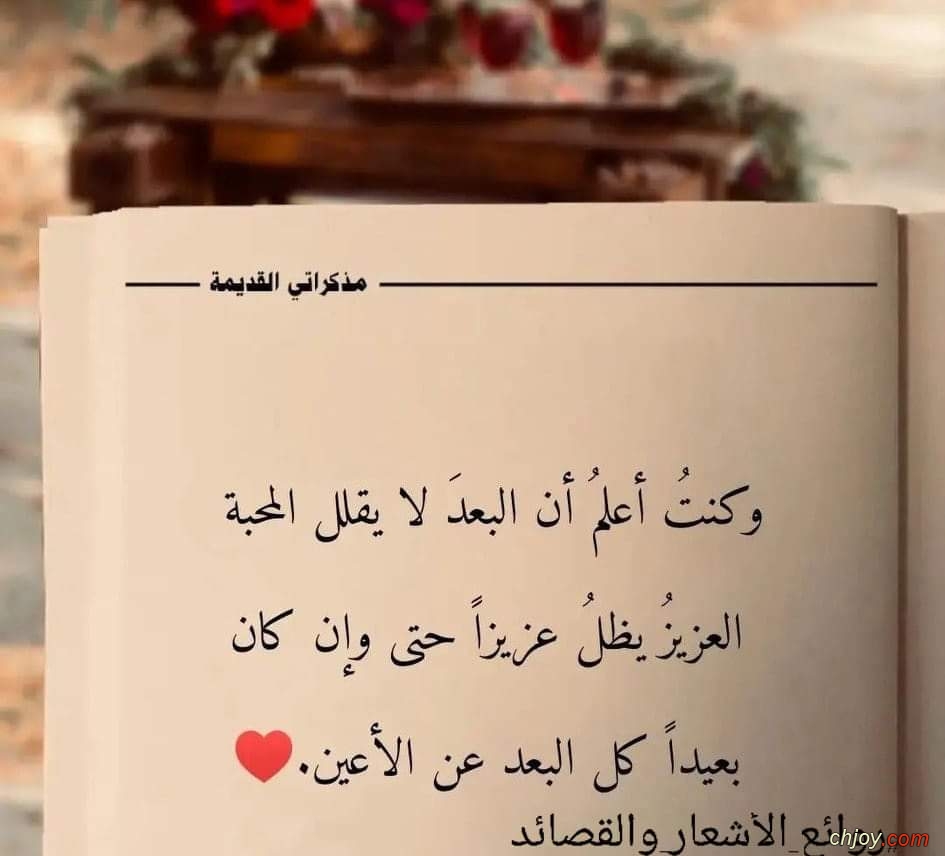 مذكراتي القديمة
وكنتُ أعلمُ أن البعدَ لا يقلل المحبة
العزيزُ يظلُ عزيزاً حتى وإن كان
بعيداً كل البعد عن الأعين.❤️
روائع_الأشعار_والقصائد
chjoy.com